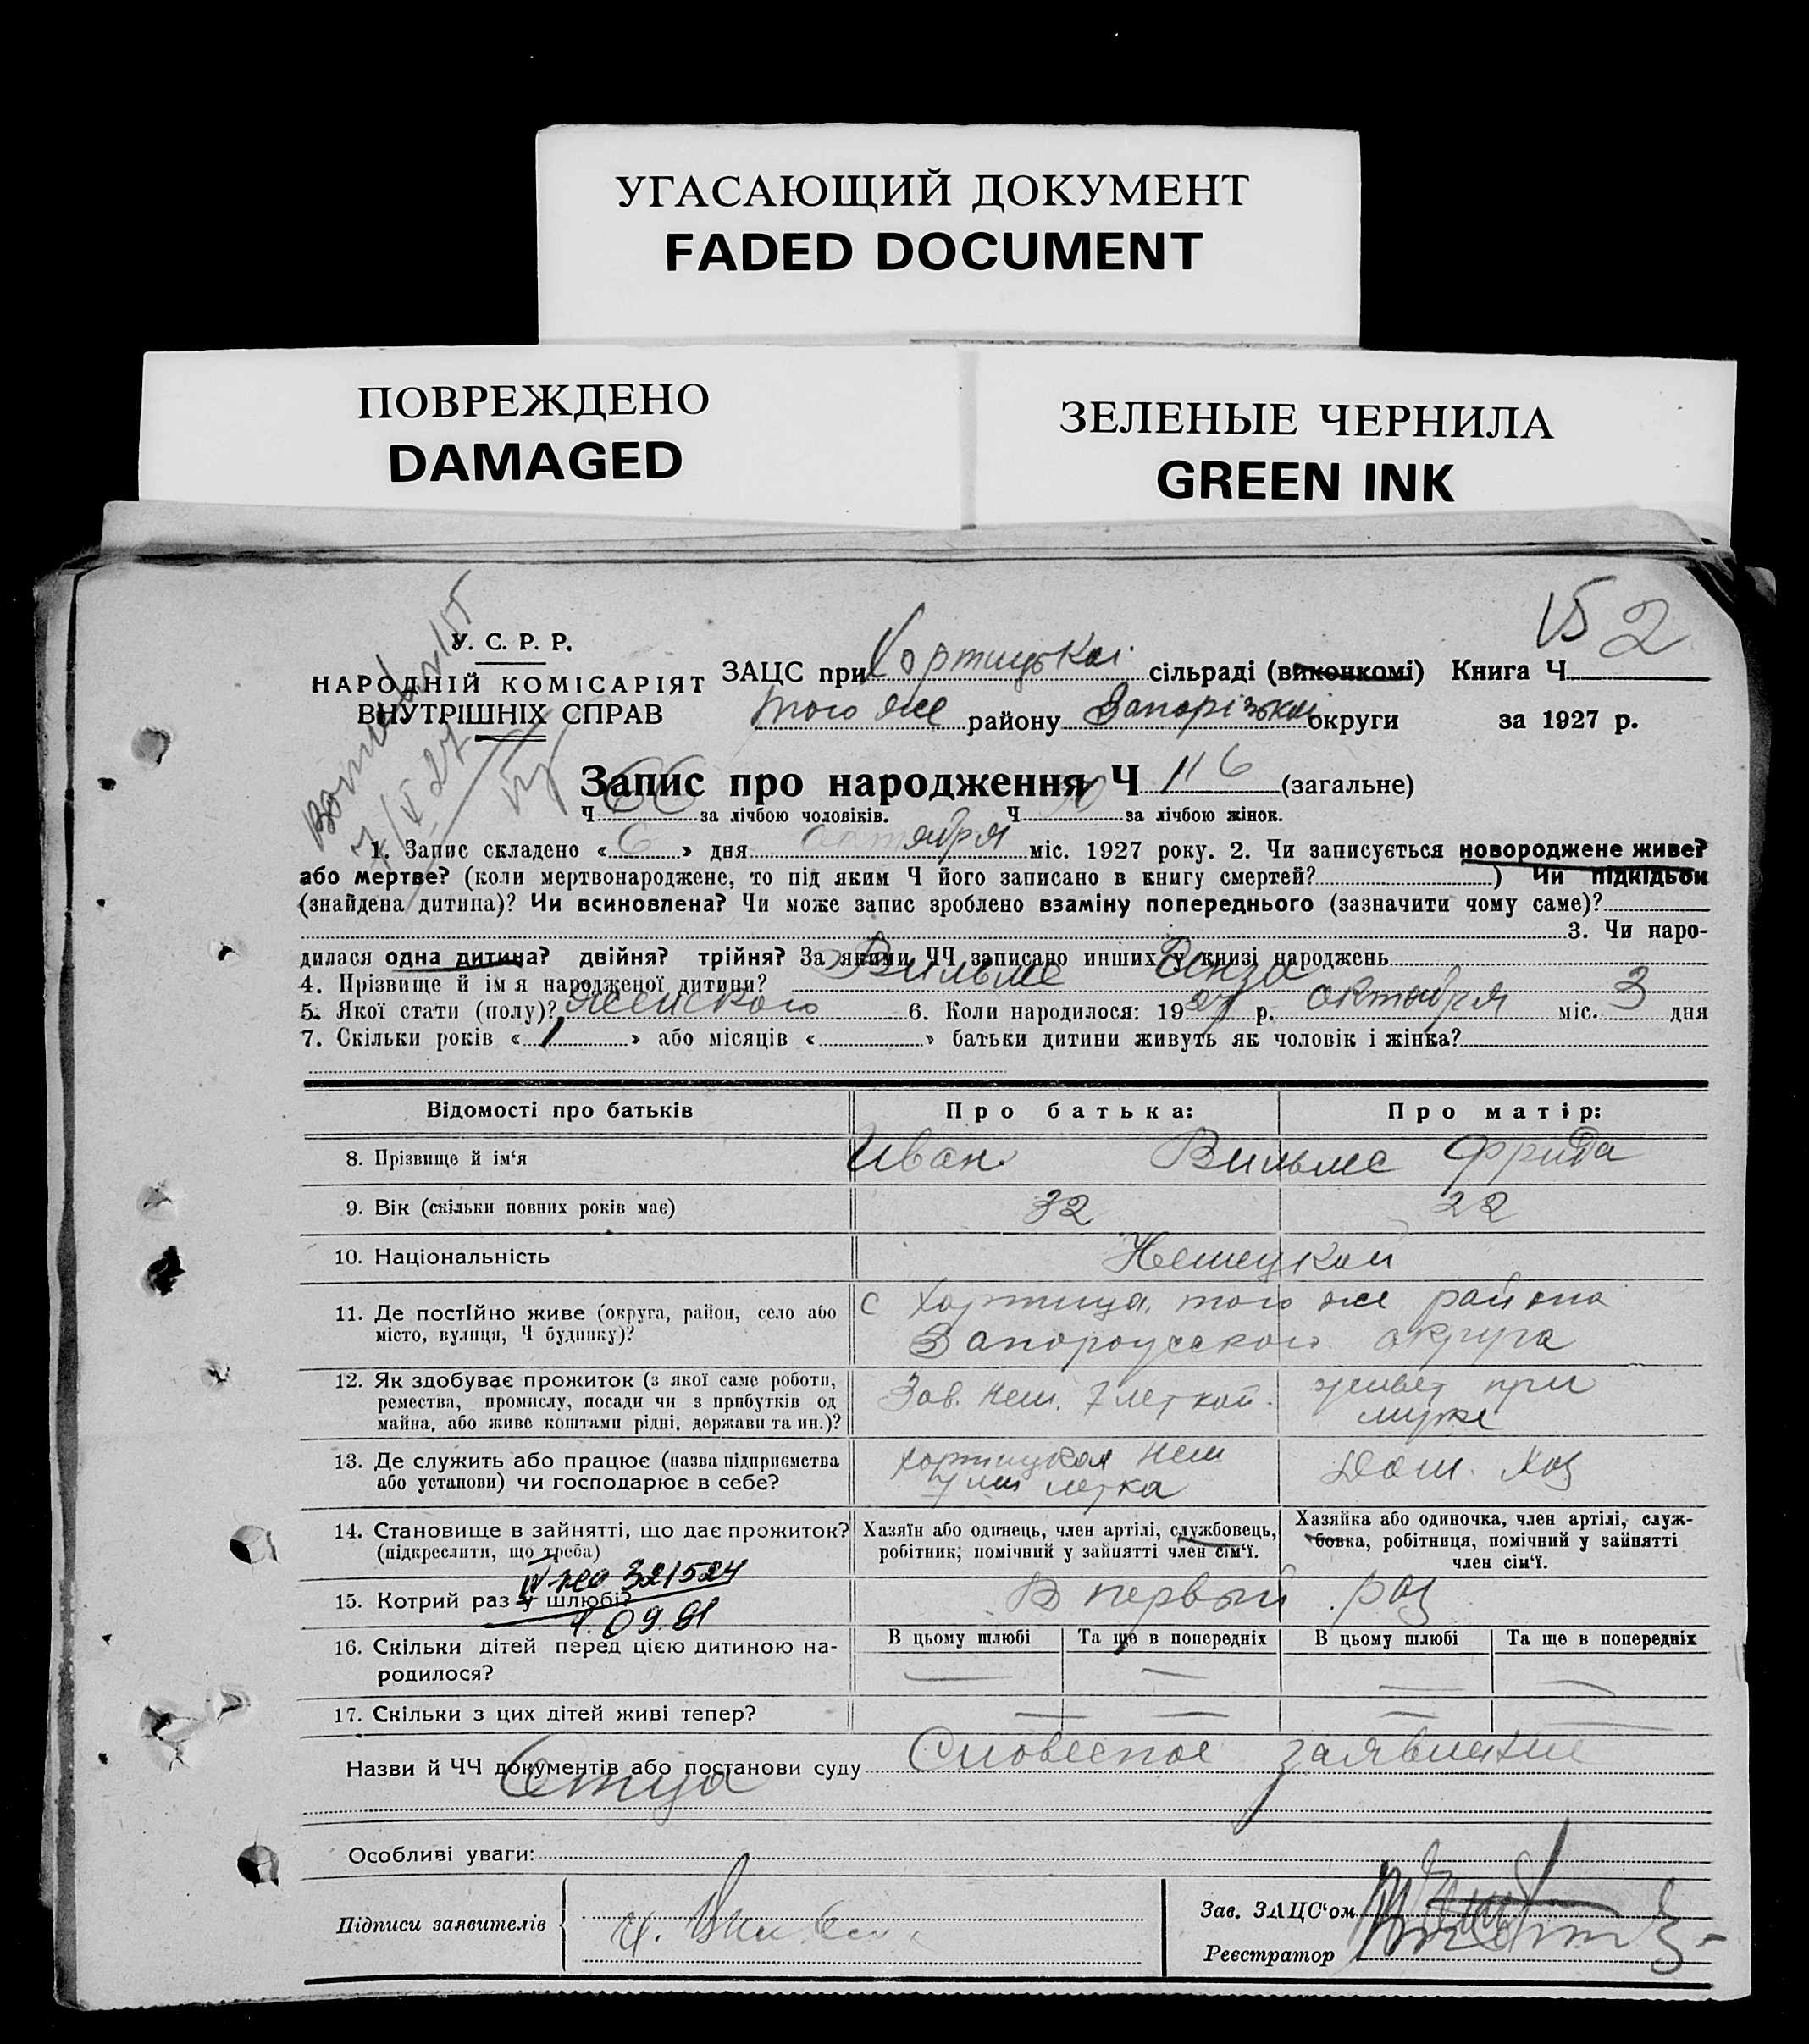 УГАСАЮЩИЙ ДОКУМЕНТ
FADED DOCUMENT
ПОВРЕЖДЕНО
DAMAGED
ЗЕЛЕНЫЕ ЧЕРНИЛА
GREEN INK
15 2
У. С. Р. Р.
НАРОДНІЙ КОМІСАРІЯТ
ВНУТРІШНІХ СПРАВ
ЗАЦС при Хортицької сільраді (виконкомі) Книга Ч
того же району Запорізької округи за 1927 р.
Запис про народження Ч 116 (загальне)
Ч 66 за лічбою чоловіків. Ч за лічбою жінок.
1. Запис складено « 6 » дня октября міс. 1927 року. 2. Чи записується новороджене живе?
або мертве? (коли мертвонароджене, то під яким Ч його записано в книгу смертей? ) Чи підкідьок
(знайдена дитина)? Чи всиновлена? Чи може запис зроблено взаміну попереднього (зазначити чому саме)?
3. Чи наро-
дилася одна дитина? двійня? трійня? За якими ЧЧ записано инших у книзі народжень
4. Прізвище й імя народженої дитини? Вильмс
5. Якої стати (полу)? женского 6. Коли народилося: 1927 р. октября міс. 3 дня
7. Скільки років « 1 » або місяців « » батьки дитини живуть як чоловік і жінка?
Відомості про батьків Про батька: Про матір:
8. Прізвище й ім‘я Иван Вильмс Фрида
9. Вік (скільки повних років має) 32 22
10. Національність Немецкой
11. Де постійно живе (округа, район, село або с Хортица, того же района
місто, вулиця, Ч будинку)? Запорожского округа
12. Як здобуває прожиток (з якої саме роботи, Зав. Нем. 7 леткой. живет при
ремества, промислу, посади чи з прибутків од муже
майна, або живе коштами рідні, держави та ин.)?
13. Де служить або працює (назва підприємства Хортицкая Нем Дом. хоз
або установи) чи господарює в себе? 7 ми летка
14. Становище в зайнятті, що дає прожиток? Хазяїн або одинець, член артілі, службовець, Хазяйка або одиночка, член артілі, служ-
(підкреслити, що треба) робітник; помічний у зайнятті член сім‘ї. бовка, робітниця, помічний у зайнятті
член сім‘ї.
321524
15. Котрий раз у шлюбі? В первый раз
1.09.91
16. Скільки дітей перед цією дитиною на- В цьому шлюбі Та ще в попередніх В цьому шлюбі Та ще в попередніх
родилося? — — — —
17. Скільки з цих дітей живі тепер? — — — —
Назви й ЧЧ документів або постанови суду Словесное заявление
Отца
Особливі уваги:
Підписи заявителів
Зав. ЗАЦС‘ом
Реєстратор